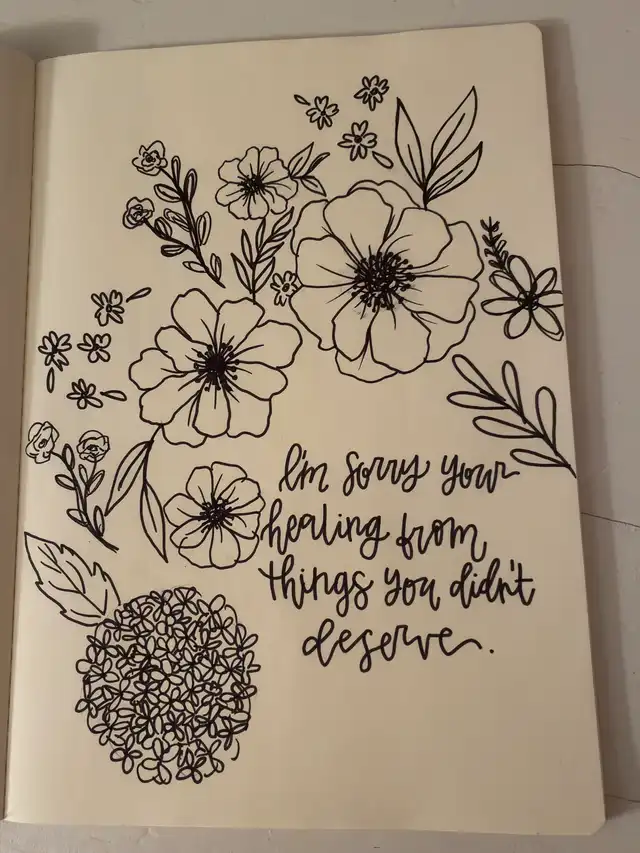 I'm sorry your
healing from
things you didn't
deserve.